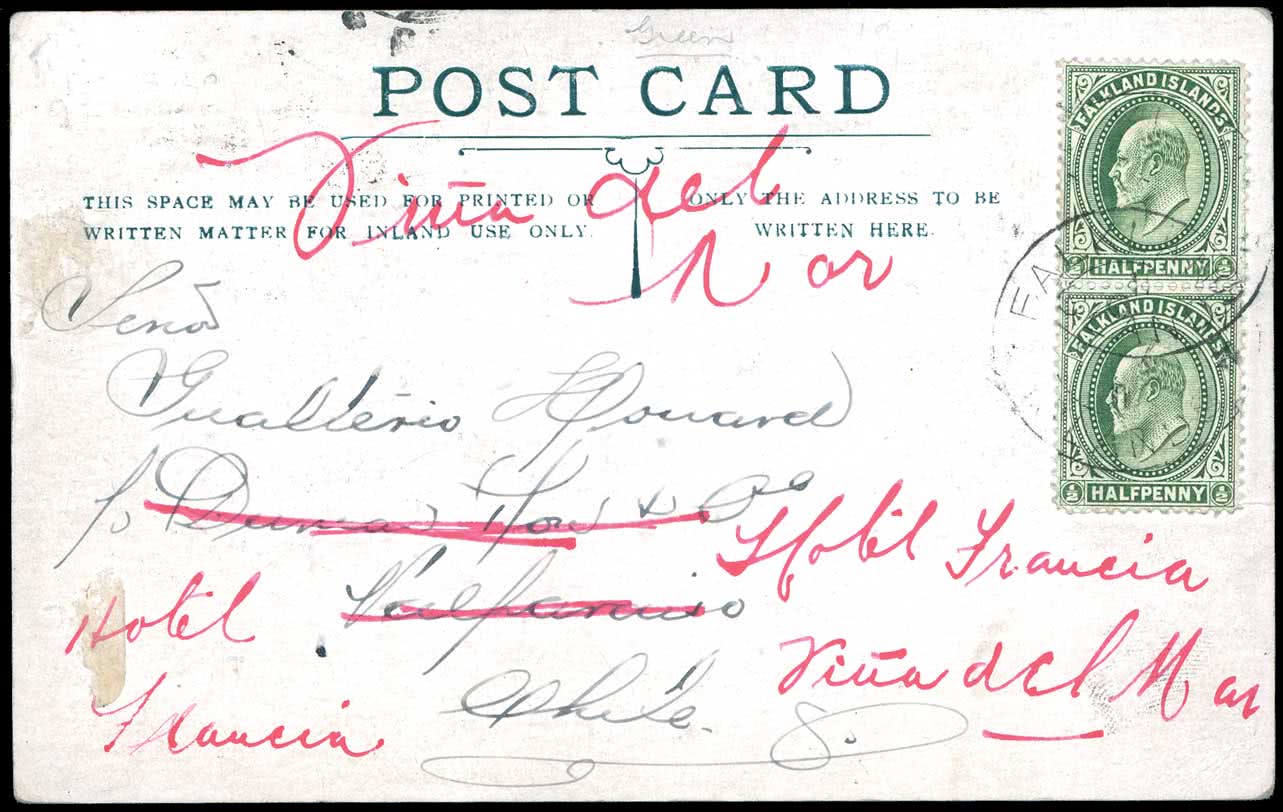 Green
POST CARD
Viña del
Mar
THIS SPACE MAY BE USED FOR PRINTED OR
WRITTEN MATTER FOR INLAND USE ONLY.
ONLY THE ADDRESS TO BE
WRITTEN HERE.
FALKLAND ISLANDS
HALFPENNY
FALKLAND ISLANDS
HALFPENNY
Señor
Gualterio Howard
Valparaiso
Chile.
Hotel Francia
Viña del Mar
Hotel
Francia